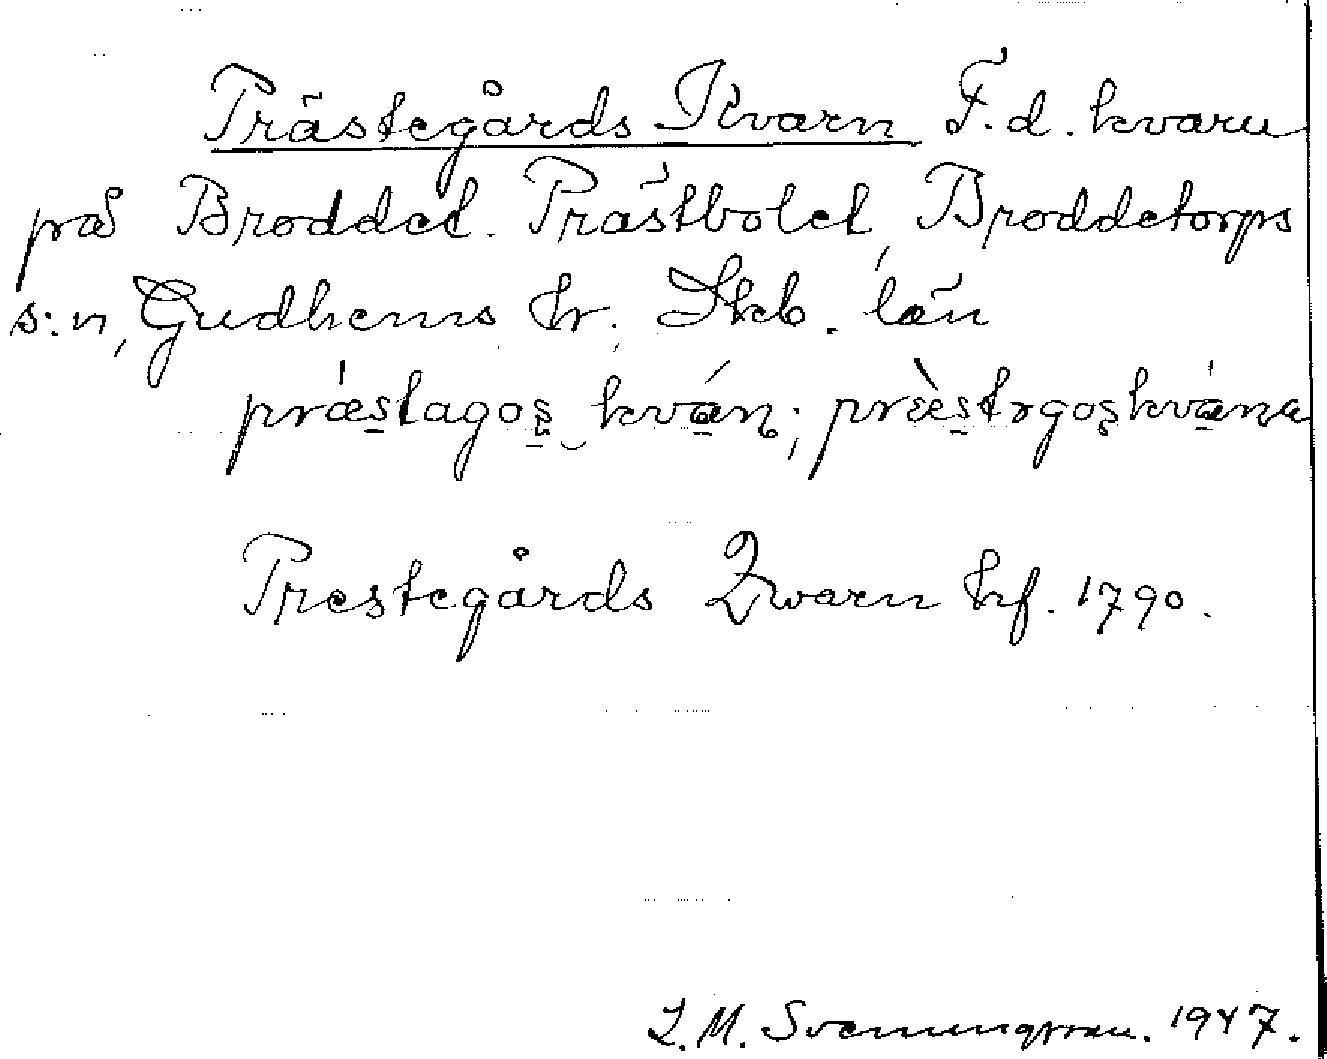 Prästegårds Kvarn F.d. kvarn
på Broddet. Prästbolet, Broddetorps
s:n, Gudhems hr. Skb. län
prǽstagos kván; præ̀strgoskvána
Prestegårds Qwarn krf. 1790.
L.M. Svenungsson. 1947.